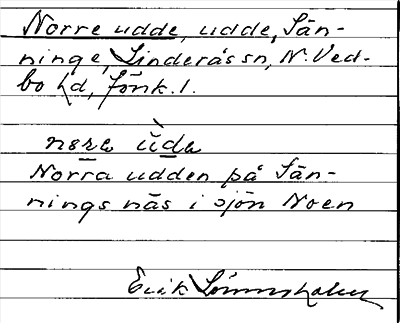 Norre udde, udde, Sän-
ninge, Linderås sn, N. Ved-
bo hd, Jönk. l.
nøra ùda
Norra udden på Sän-
nings näs i sjön Noen
Erik